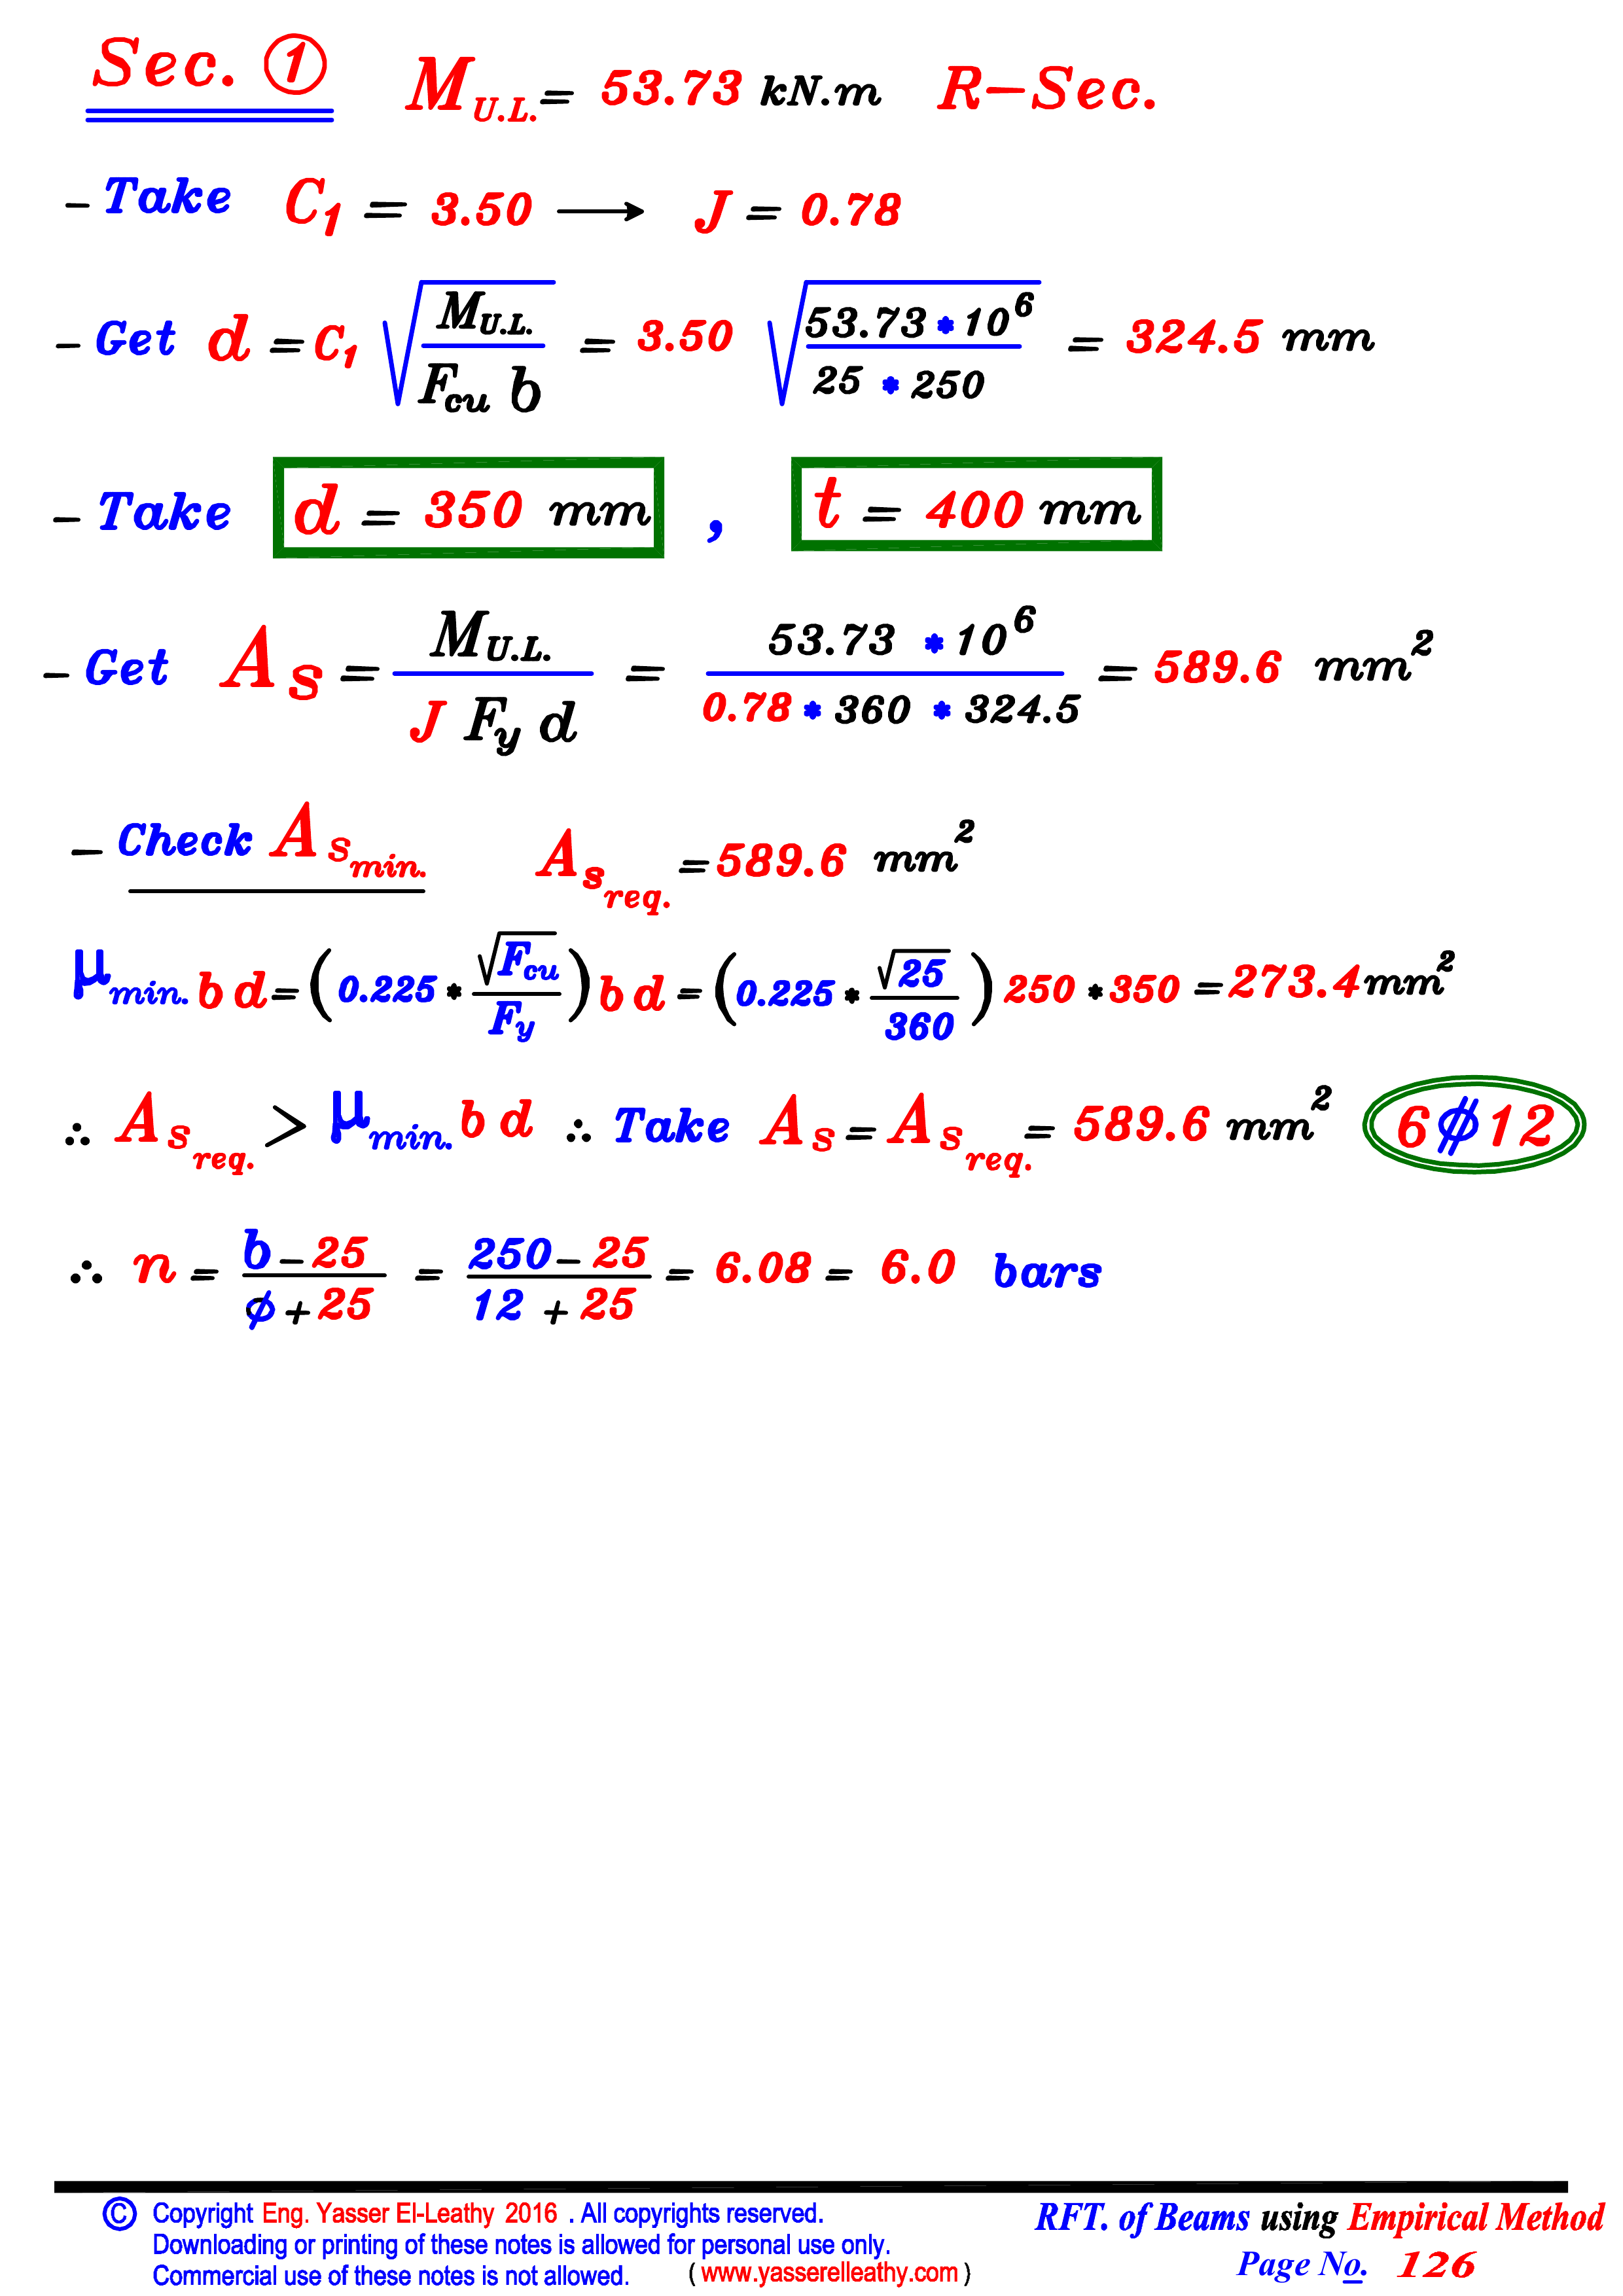 Sec. ① M U.L. = 53.73 kN.m R-Sec.
- Take C₁ = 3.50 ⟶ J = 0.78
- Get d = C₁ √(M U.L. / F cu b) = 3.50 √(53.73 * 10⁶ / 25 * 250) = 324.5 mm
- Take d = 350 mm , t = 400 mm
- Get A s = M U.L. / J F y d = 53.73 * 10⁶ / 0.78 * 360 * 324.5 = 589.6 mm²
- Check A s min. A s req. = 589.6 mm²
μ min. b d = (0.225 * √F cu / F y) b d = (0.225 * √25 / 360) 250 * 350 = 273.4 mm²
∴ A s req. > μ min. b d ∴ Take A s = A s req. = 589.6 mm² 6 ⌀ 12
∴ n = b - 25 / φ + 25 = 250 - 25 / 12 + 25 = 6.08 = 6.0 bars
© Copyright Eng. Yasser El-Leathy 2016 . All copyrights reserved.
Downloading or printing of these notes is allowed for personal use only.
Commercial use of these notes is not allowed. ( www.yasserelleathy.com )
RFT. of Beams using Empirical Method
Page No. 126